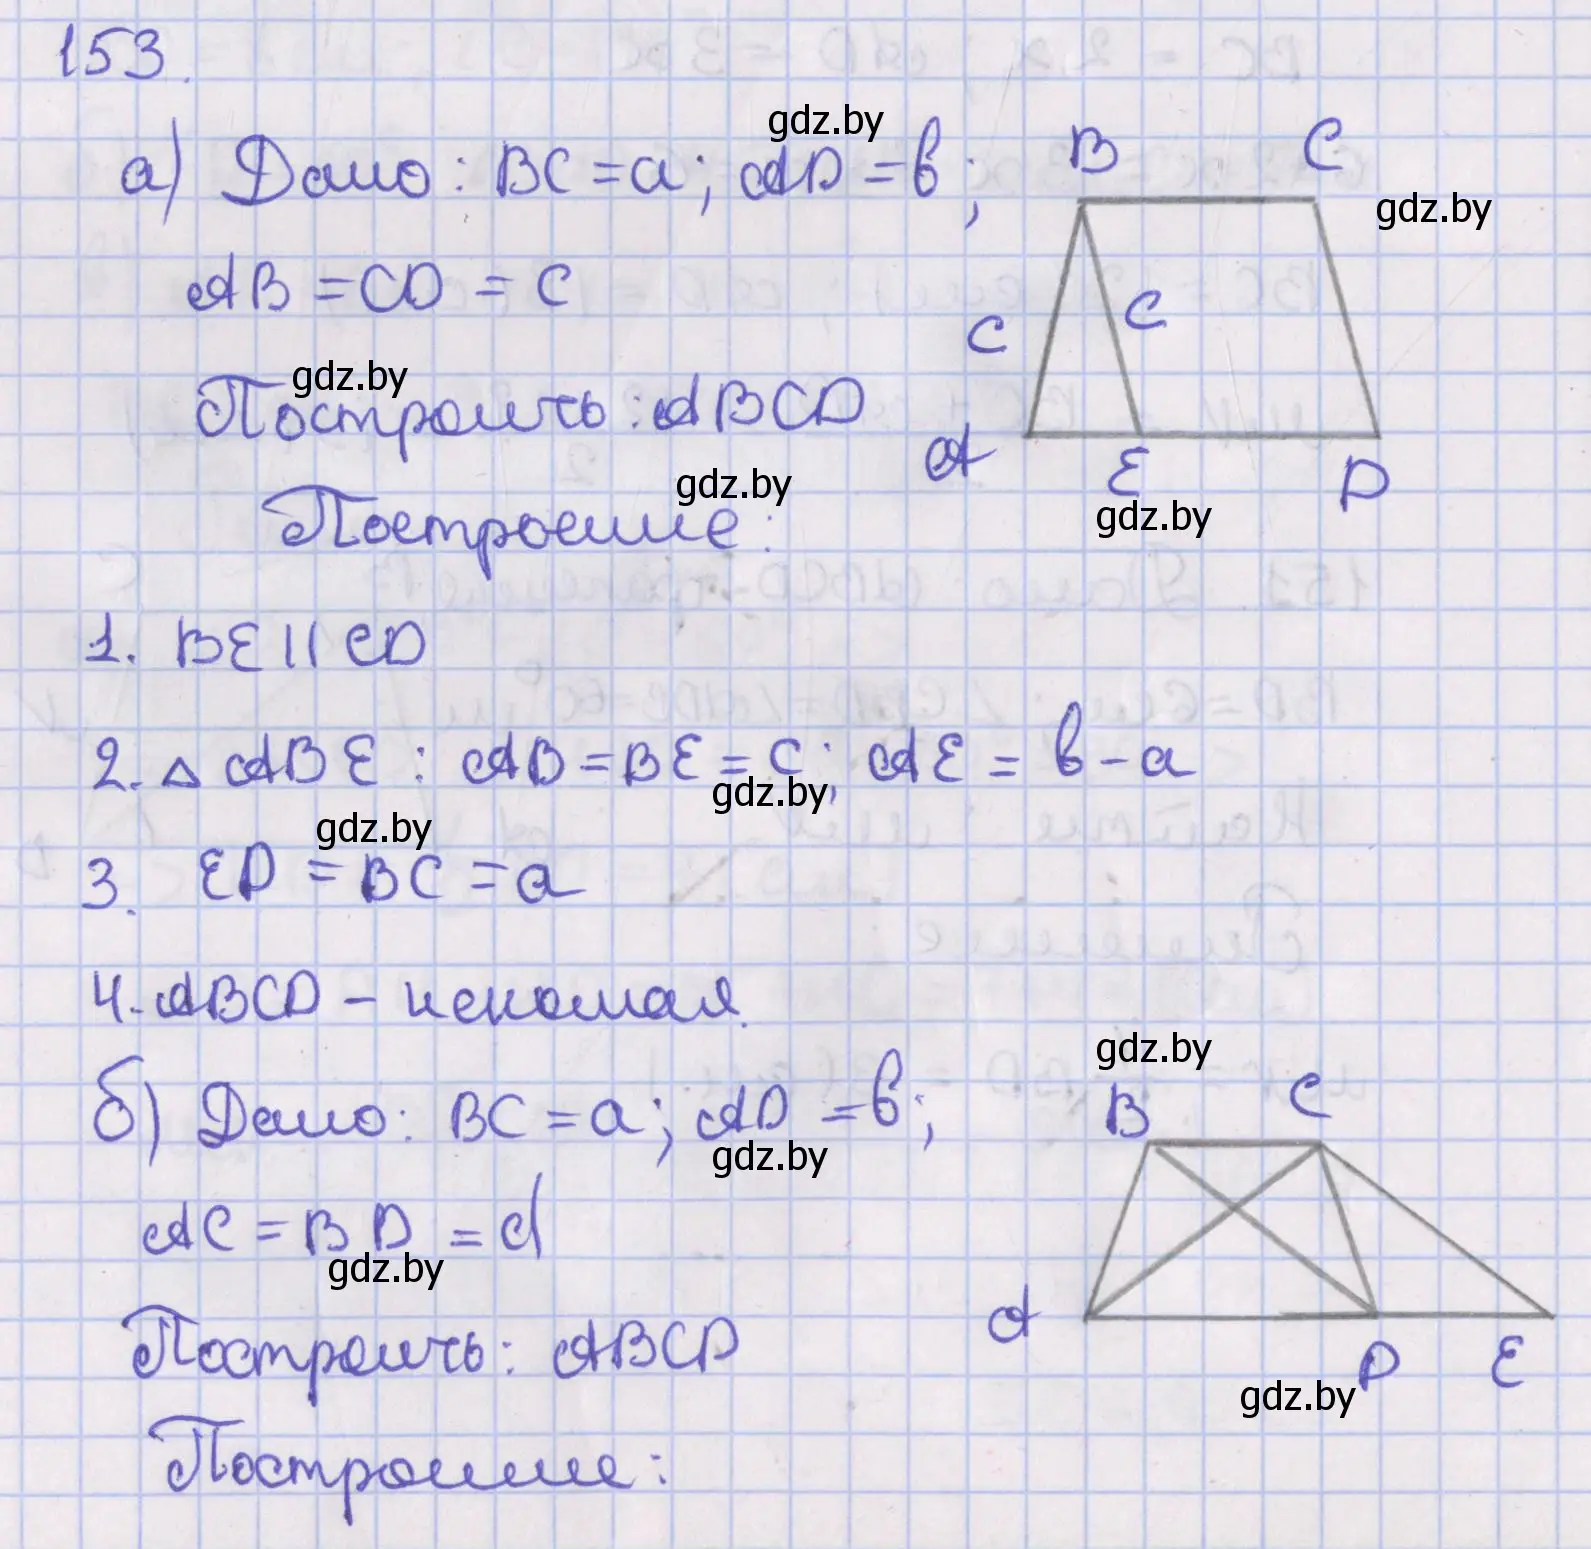 153.
gdz.by
а) Дано: BC = a; AD = b;
B C
gdz.by
AB = CD = c
c c
gdz.by
Построить: ABCD
A E D
gdz.by
gdz.by
Построение:
1. BE || CD
2. △ ABE : AB = BE = c; AE = b - a
gdz.by
gdz.by
3. ED = BC = a
4. ABCD - искомая.
gdz.by
б) Дано: BC = a; AD = b;
B C
gdz.by
AC = BD = d
gdz.by
A D E
Построить: ABCD
gdz.by
Построение: